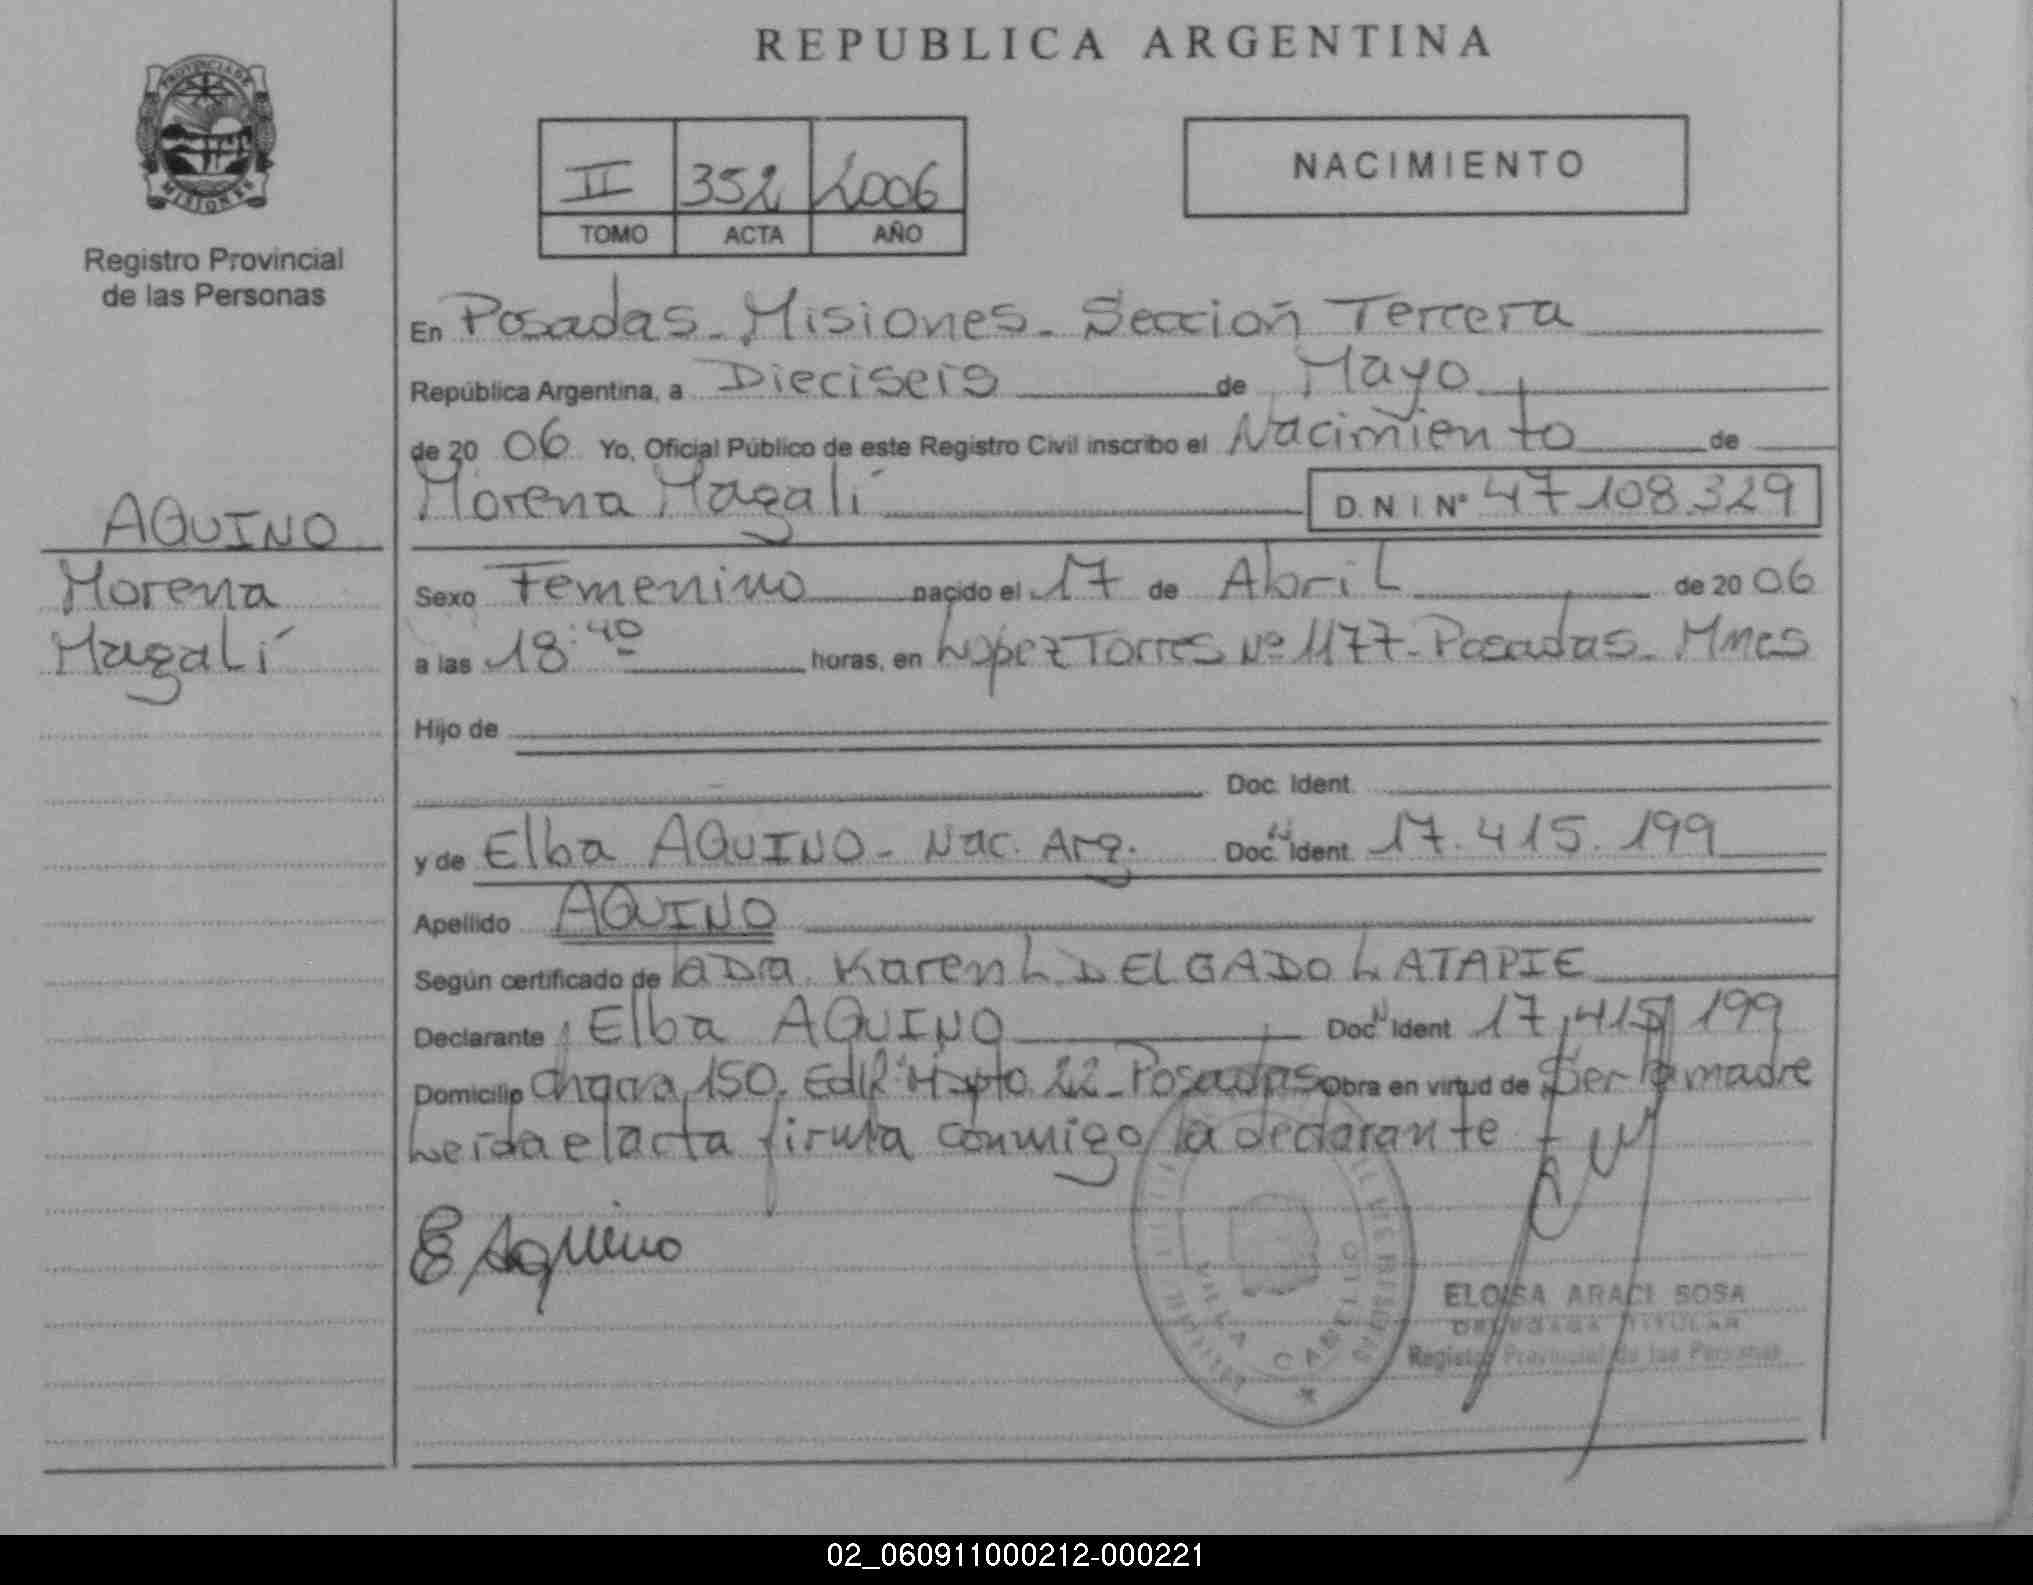 REPUBLICA ARGENTINA
PROVINCIA DE
MISIONES
Registro Provincial
de las Personas
II 352 2006
TOMO ACTA AÑO
NACIMIENTO
En Posadas - Misiones - Sección Tercera
República Argentina, a Dieciseis de Mayo
de 20 06 Yo, Oficial Público de este Registro Civil inscribo el Nacimiento de
Morena Magalí D.N.I Nº 47.108.329
AQUINO
Morena
Magalí
Sexo Femenino nacido el 17 de Abril de 20 06
a las 18:40 horas, en López Torres Nº 1177 - Posadas - Mnes
Hijo de
Doc. Ident.
y de Elba AQUINO - Nac. Arg. Doc. Ident. 17.415.199
Apellido AQUINO
Según certificado de la Dra. Karen L. DELGADO LATAPIE
Declarante Elba AQUINO Doc. Ident 17.415.199
Domicilio Chacra 150. Edif. Dpto 22 - Posadas Obra en virtud de Ser la madre
Leída el acta firma conmigo la declarante
E Aquino
VILLA CABELLO
ELOISA ARACI SOSA
DELEGADA TITULAR
Registro Provincial de las Personas
02_060911000212-000221